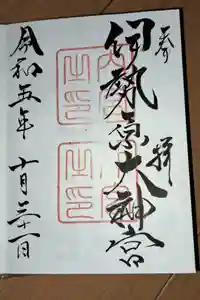 奉拝
伊勢原大神宮
令和五年 十月三十一日